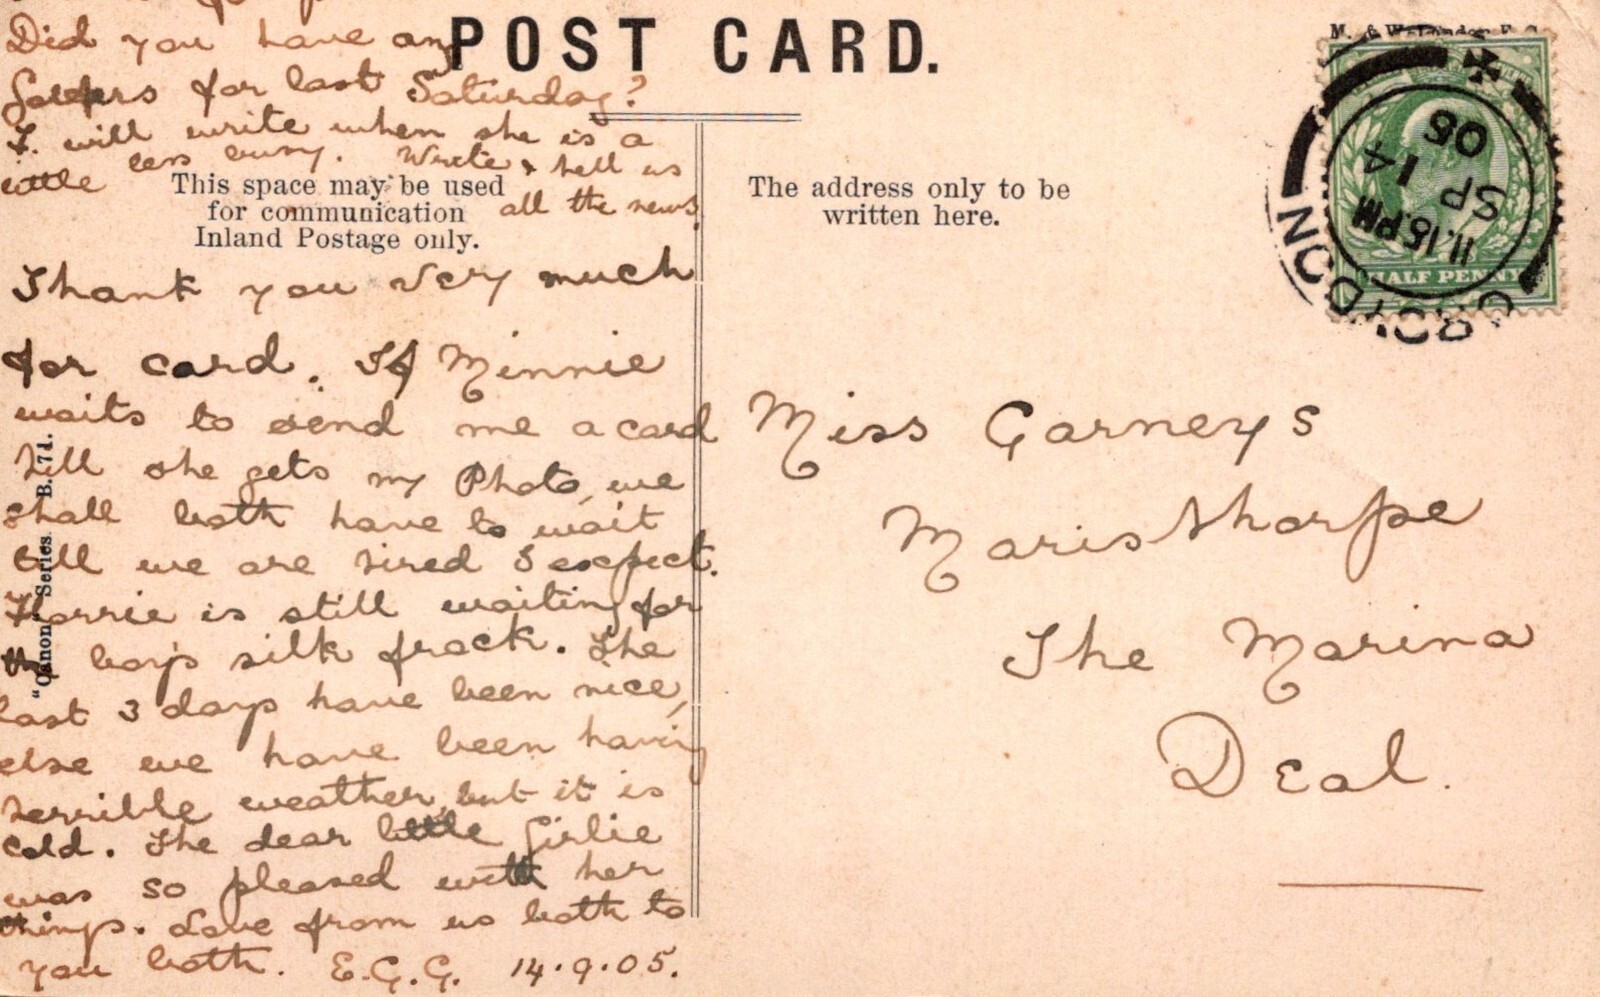 POST CARD.
Did you have any
for last Saturday?
F. will write when she is a
little less busy. Write & tell us
all the news.
This space may be used
for communication
Inland Postage only.
The address only to be
written here.
Thank you very much
for card. If Minnie
waits to send me a card
till she gets my Photo, we
shall both have to wait
till we are tired I expect.
Florrie is still waiting for
boy's silk frock. The
last 3 days have been nice,
else we have been having
terrible weather, but it is
cold. The dear little Girlie
was so pleased with her
things. Love from us both to
you both. E.G.G. 14.9.05.
"Canon" Series. B.71.
Miss Garneys
Maristhorpe
The Marina
Deal.
HALF PENNY
CROYDON
11.15 PM
SP 14
05